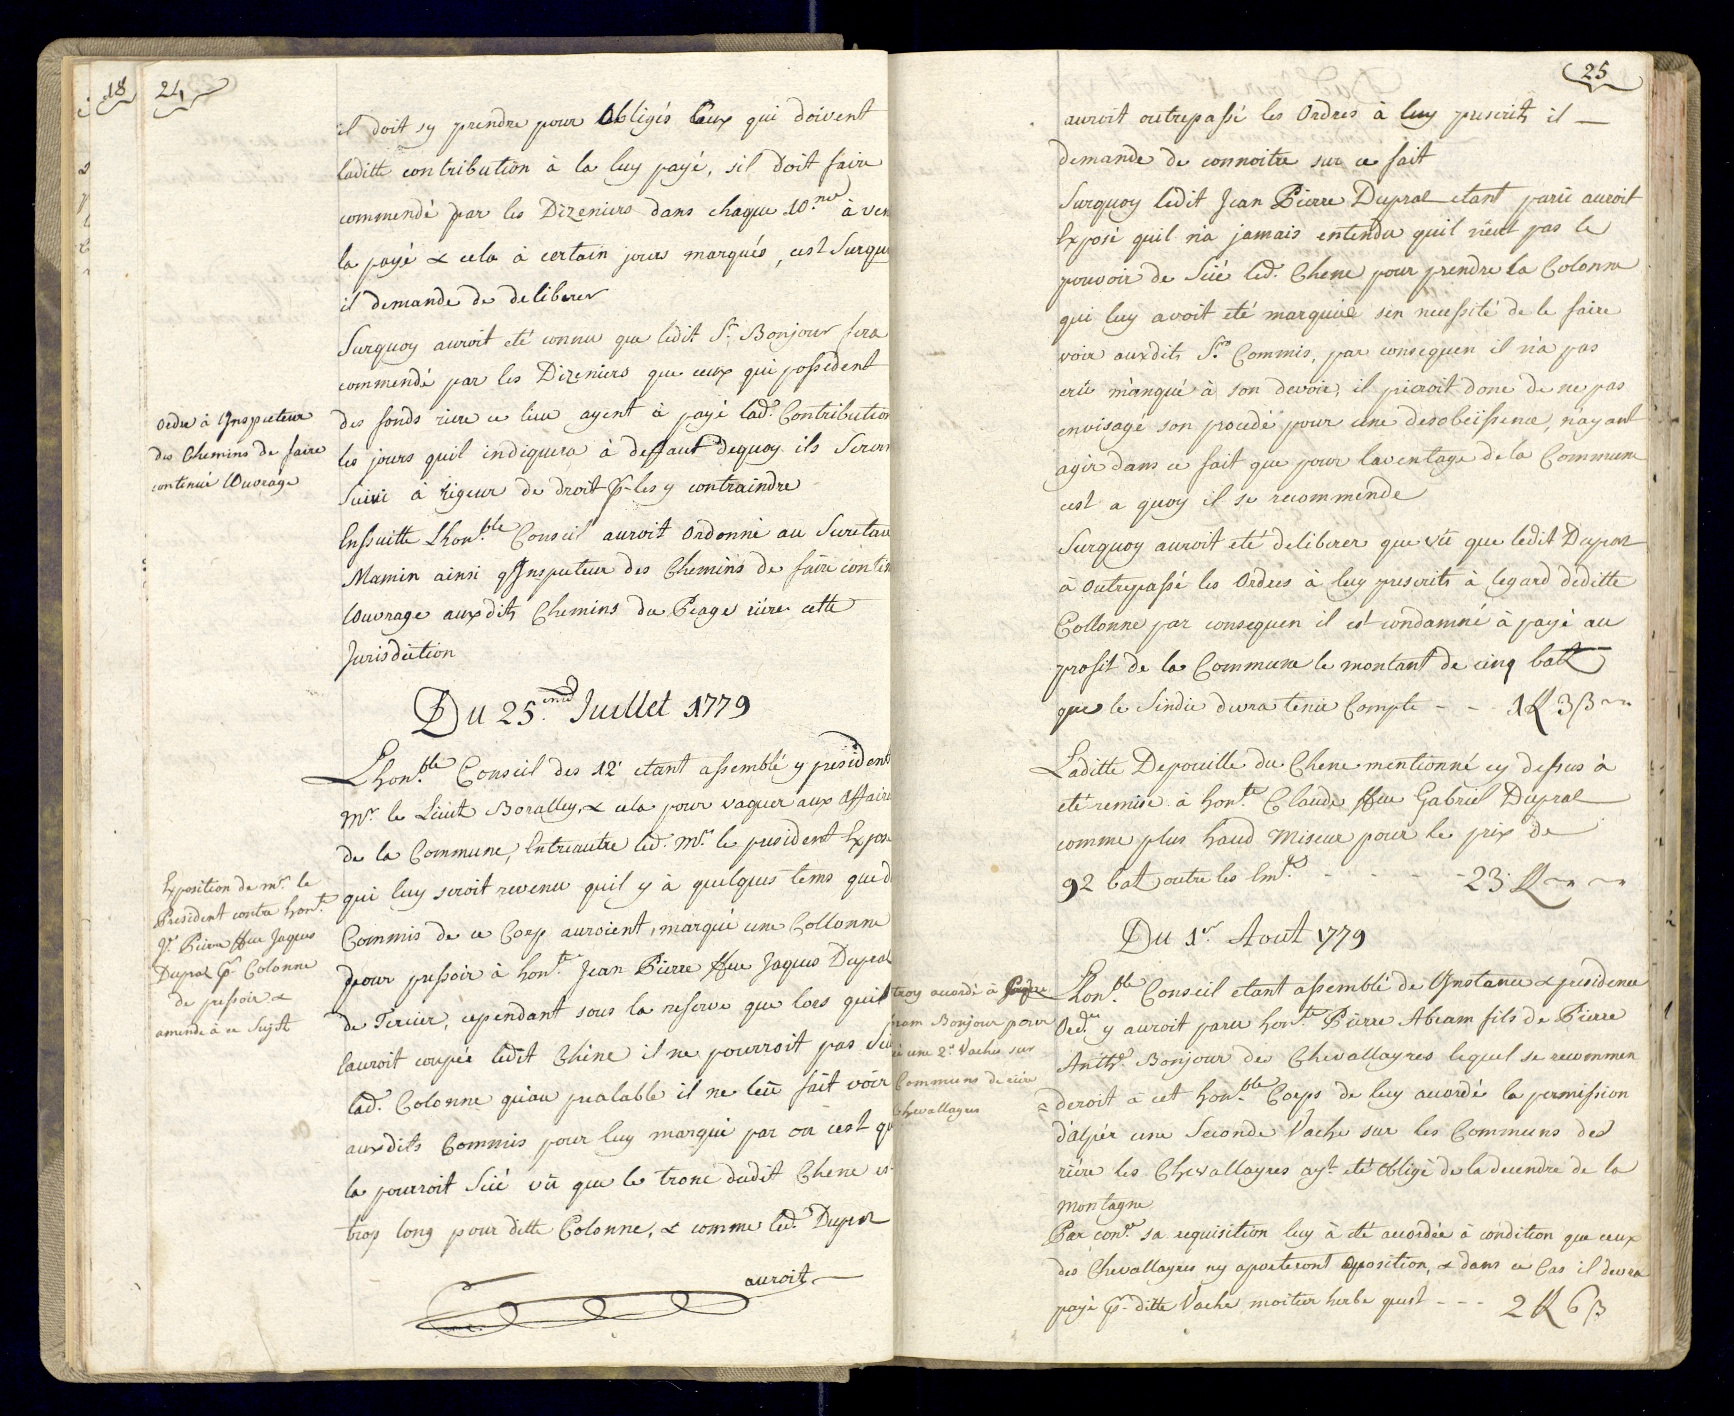 18
24
il doit sy prendre pour Obligés Ceux qui doivent
laditte contribution à la luy payé, sil doit faire
commendé par les Dizeniers dans chaque 10.ne à ven
la payé & cela à certain jours marqués, cest Surquo
il demande de deliberer
Surquoy auroit eté connu que ledit Sr. Bonjour fera
commendé par les Dizeniers que ceux qui possedent
des fonds riere ce lieu ayent à payé lad. Contribution
les jours quil indiquera à deffaut dequoy ils Seron
Suivi à rigeur de droit pr. les y contraindre
Ordre à Inspecteur
des Chemins de faire
continué l'Ouvrage
Ensuitte Lhon.ble Conseil auroit Ordonné au Secretai
Mamin ainsi q Inspecteur des Chemins de faire contin
l'Ouvrage auxdits Chemins du Peage riere cette
Jurisdiction
Du 25.eme Juillet 1779
Lhon.ble Conseil des 12 etant assemblé y president
Mr. le Lieut Boralley, & cela pour vaquer aux Affaire
de la Commune, Entreautre led. Mr. le president Expose
qui luy seroit revenu quil y à quelques tems que d
Commis de ce Corp auroient marqué une Collonne
pour pressoir à hon.te Jean Pierre ffeu Jaques Dupraz
de Tercier, cependant sous la reserve que lors quil
lauroit coupée ledit Chêne il ne pourroit pas Scié
lad. Colonne qu'au prealable il ne leü fait voir
auxdits Commis pour luy marqué par où cest qu
la pourroit Scié vü que le tronc dudit Chene es
trop long pour ditte Colonne, & comme led. Dupraz
auroit
Exposition de mr. le
President contre hon.te
Jn. Pierre ffeu Jaques
Dupraz pr. Colonne
de pressoir &
amende à ce Sujet
25
auroit outrepassé les Ordres à luy prescrits il
demande de connoitre sur ce fait
Surquoy ledit Jean Pierre Dupraz etant parü auroit
Exposé quil n'a jamais entendu quil n'eut pas le
pouvoir de Scié led. Chene pour prendre la Colonne
qui luy avoit eté marquée sen necessité de le faire
voir auxdits Srs. Commis, par consequen il n'a pas
crü manqué à son devoir, il prieroit donc de ne pas
envisagé son procedé pour une desobeïssence, n'ayant
agir dans ce fait que pour l'aventage de la Commune
cest a quoy il se recommende
Surquoy auroit eté deliberer que vü que ledit Dupraz
à Outrepassé les Ordres à luy prescrits à legard deditte
Collonne par consequen il est condamné à payé au
profit de la Commune le montant de cinq batz
que le Sindic devra tenir Compte - - 1 ℔ 3 ß
Laditte Depouille du Chene mentionné cy dessus à
eté remise à hon.te Claude ffeu Gabriel Dupraz
comme plus haud Miseur pour le prix de
92 bat outre les Em.ts - - - - 23 ℔
Du 1er. Aout 1779
Lhon.ble Conseil etant assemblé de Instance & presidence
Ord.re y auroit paru hon.te Pierre Abram fils de Pierre
Anth.e Bonjour des Chevallayres lequel se recommen
deroit à cet hon.ble Corps de luy accordé la permission
d'alpér une Seconde Vache sur les Communs des
riére les Chevallayres ayt. eté Obligé de la decendre de la
Montagne
Par con.t sa requisition luy à eté accordée à condition que ceux
des Chevallayres ny aporteront oposition, & dans ce Cas il devra
payé pr. ditte Vache moitier herbe quest - - - 2 ℔ 6 ß
troy accordé à
ram Bonjour pour
é une 2.e Vache sur
Communs de riére
Chevallayres